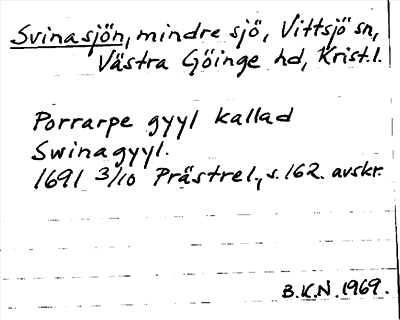 Svinasjön, mindre sjö, Vittsjö sn,
Västra Göinge hd, Krist.l.
Porrarpe gyyl kallad
Swinagyyl.
1691 3/10 Prästrel., s. 162. avskr.
B.K.N. 1969.